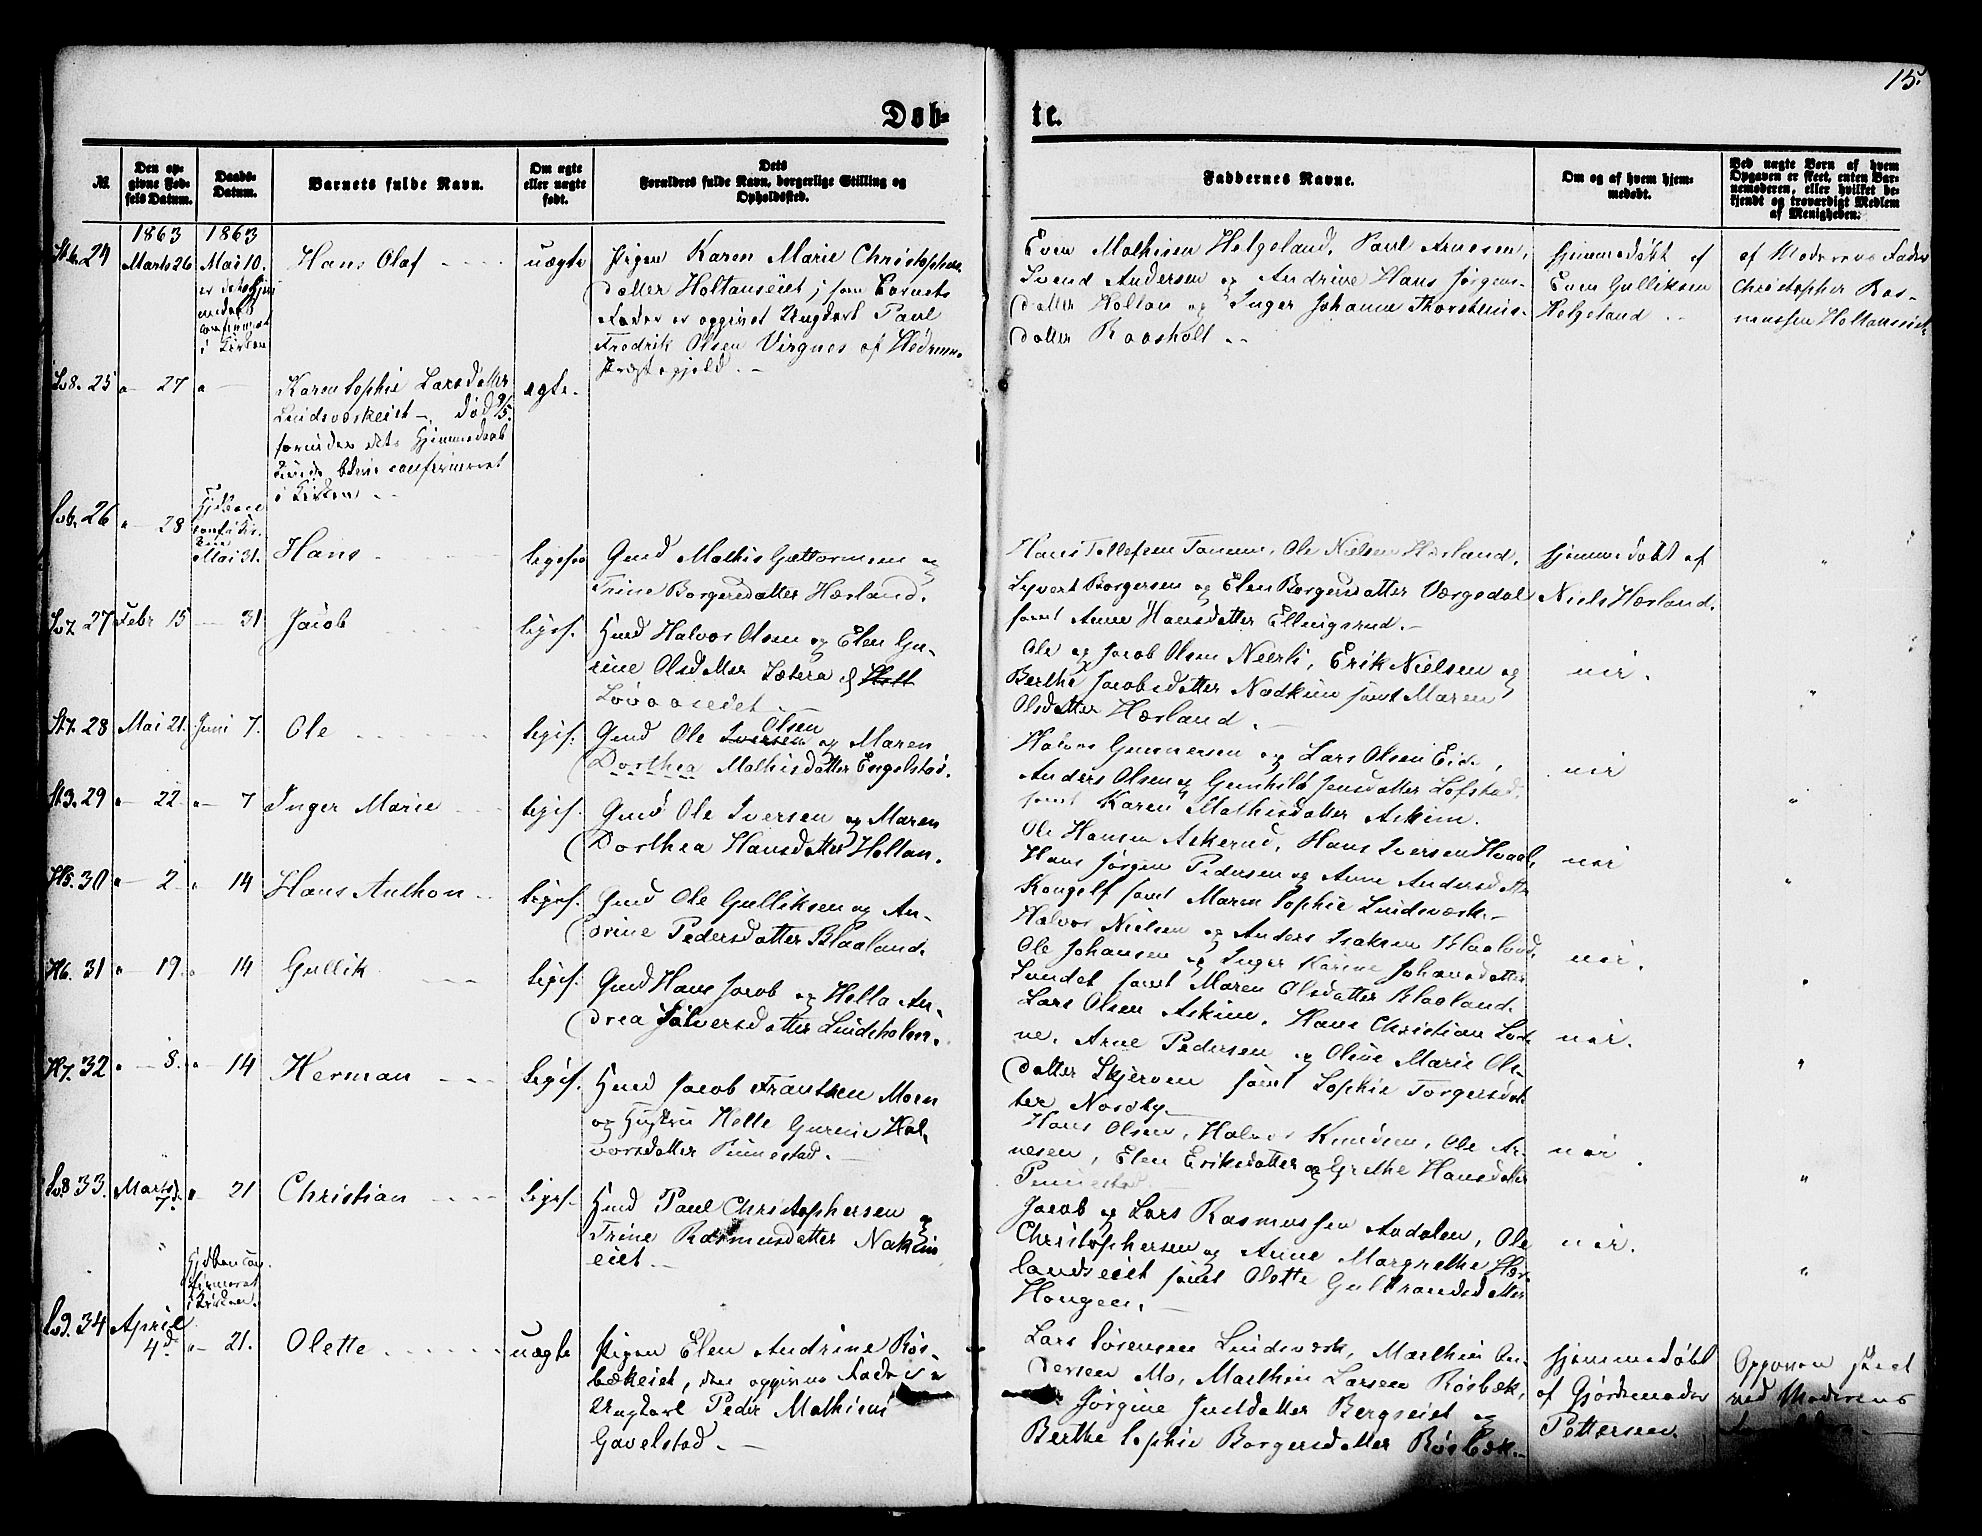 15.
Døb-
te.
№
Den op-
givne Fød-
sels Datum.
Daabs-
Datum.
Barnets fulde Navn.
Om ægte
eller uægte
født.
Dets
Forældres fulde Navn, borgerlige Stilling og
Opholdssted.
Faddernes Navne.
Om og af hvem hjem-
medøbt.
Ved uægte Børn af hvem
Opgaven er skeet, enten Bar-
nemoderen, eller hvilket be-
kjendt og troværdigt Medlem
af Menigheden.
1863
1863
24
Marts 26
Mai 10.
Hans Olaf
uægte
Pigen Karen Marie Christophers
datter Holtanseiet; som Barnets
Fader er opgivet Ungkarl Paul
Fredrik Olsen Virgnes af Hedrum
Præstegjeld.
Even Mathisen Helgeland, Paul Arnesen,
Svend Andersen og Andrine Hans Jørgens-
datter Holtan og Inger Johanne Thorstens-
datter Raasholt
hjemmedøbt af
Even Gulliksen
Helgeland
af Moderens Fader
Christopher Ras-
mussen Holtanseiet
25
27
Karen Sophie Larsdatter
Lindsværkeiet død 9/5.
forinden dets Hjemmedaab
kunde blive confirmeret
i Kirken
ægte.
26
28
Mai 31.
Hans
ligeså
Gmd Mathis Guttormsen og
Trine Borgersdatter Hærland.
Hans Tollefsen Tamm, Ole Nielsen Hærland,
Syvert Borgersen og Elen Borgersdatter Værgedal
samt Anne Hansdatter Ellingsrud.
hjemmedøbt af
Niels Hærland.
27
Febr 15
31
Jacob
ligef.
Hmd Halvor Olsen og Elen Gu-
rine Olsdatter Sætera af
Lövaaseiet
Ole og Jacob Olsen Neerli, Erik Nielsen og
Berthe Jacobsdatter Nodkim samt Maren
Olsdatter Hærland.
nei.
28
Mai 21.
Juni 7.
Ole
ligef.
Olsen
Gmd Ole Iversen og Maren
Dorthea Mathisdatter Engelstad.
Halvor Gunnersen og Lars Olsen Eid,
Anders Olsen og Gunhild Jensdatter Lofstad
samt Karen Mathisdatter Askim.
nei
29
22
7
Inger Marie
ligef.
Gmd Ole Iversen og Maren
Dorthea Hansdatter Holtan.
Ole Hansen Askerud, Hans Iversen Hvaal,
Hans Jørgen Pedersen og Anne Andersdatter
Kongelf samt Maren Sophie Lindsværk.
nei
30
2
14
Hans Anthon
ligef.
Gmd Ole Gulliksen og An-
drine Pedersdatter Blaaland.
Halvor Nielsen og Anders Isaksen Blaaland,
Ole Johansen og Inger Karine Johansdatter
Lundet samt Maren Olsdatter Blaaland.
nei.
31
19.
14
Gullik
ligef.
Gmd Hans Jacob og Helle An-
drea Sølversdatter Lindeholm.
Lars Olsen Askim, Hans Christian Lod-
ne, Arne Pedersen og Oline Marie Ols-
datter Skjerven samt Sophie Torgersdat-
ter Nordby
nei.
32
8.
14
Herman
ligef.
Hmd Jacob Frantsen Moen
og Hustru Helle Gurine Hal-
vorsdatter Pinnestad.
Hans Olsen, Halvor Knudsen, Ole Ar-
nesen, Elen Eriksdatter og Grethe Hansdatter
Pinnestad
nei
33.
Marts
7d.
21
Christian
ligef.
Hmd Paul Christophersen og
Trine Rasmusdatter Nakkim
eiet
Jacob og Lars Rasmussen Aadalen, Ole
Christophersen og Anne Margrethe Hær-
landseiet samt Olette Gulbrandsdatter
Hougen.
nei.
34
April
4d.
21.
Olette
uægte
Pigen Elen Andrine Røs-
bækeiet, den opgivne Fader er
Ungkarl Peder Mathisen
Gavelstad.
Lars Sørensen Lindsværk, Marthin An-
dersen Mo, Marthin Larsen Røsbæk,
Jørgine Jueldatter Bergseiet og
Berthe Sophie Borgersdatter Røsbæk.
hjemmedøbt
af Gjordemoder
Pettersen.
Opgaven skeet
ved Moderens